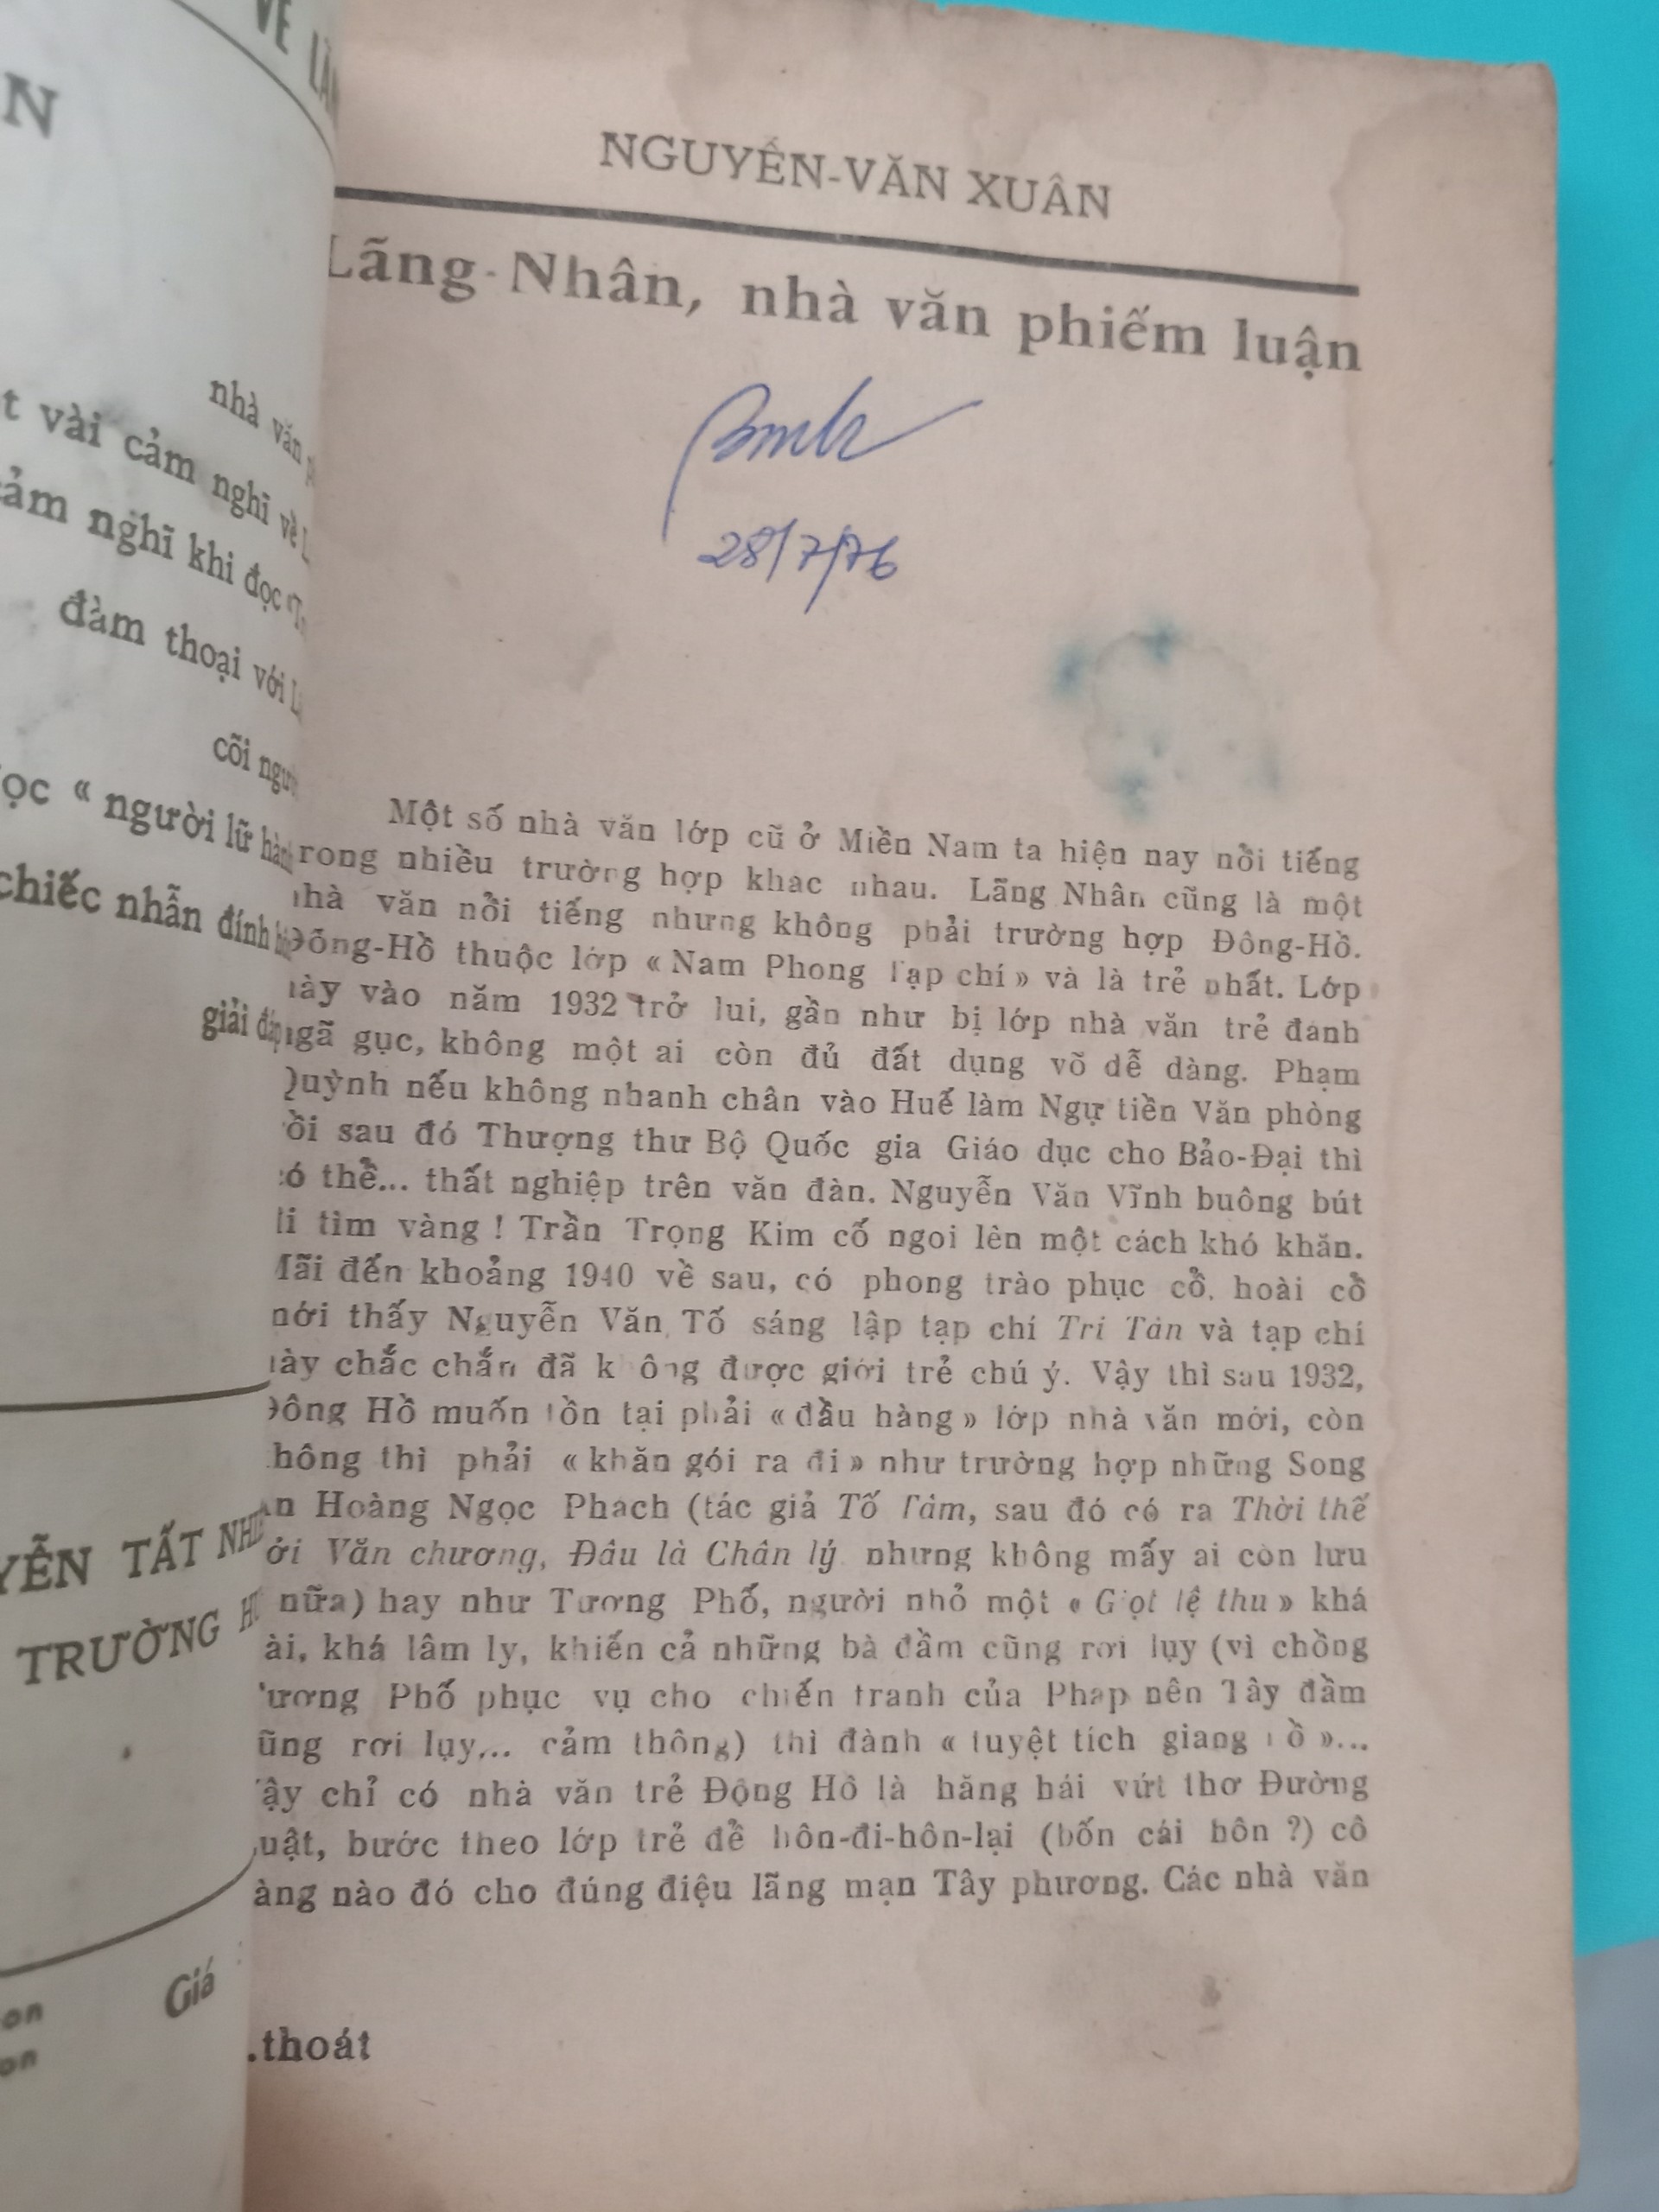 VỀ
N
nhà văn
t vài cảm nghĩ về
cảm nghĩ khi đọc
đàm thoại với
cõi người
ọc « người lữ hành
chiếc nhẫn đính
giải đáp
YỄN TẤT
TRƯỜNG
Giá
on
on
NGUYỄN-VĂN XUÂN
Lãng-Nhân, nhà văn phiếm luận
28/7/76
Một số nhà văn lớp cũ ở Miền Nam ta hiện nay nổi tiếng
rong nhiều trường hợp khác nhau. Lãng Nhân cũng là một
hà văn nổi tiếng nhưng không phải trường hợp Đông-Hồ.
Đông-Hồ thuộc lớp « Nam Phong Tạp chí » và là trẻ nhất. Lớp
ày vào năm 1932 trở lui, gần như bị lớp nhà văn trẻ đánh
gã gục, không một ai còn đủ đất dụng võ dễ dàng. Phạm
Quỳnh nếu không nhanh chân vào Huế làm Ngự tiền Văn phòng
ồi sau đó Thượng thư Bộ Quốc gia Giáo dục cho Bảo-Đại thì
ó thể... thất nghiệp trên văn đàn. Nguyễn Văn Vĩnh buông bút
i tìm vàng ! Trần Trọng Kim cố ngoi lên một cách khó khăn.
Mãi đến khoảng 1940 về sau, có phong trào phục cổ, hoài cổ
mới thấy Nguyễn Văn Tố sáng lập tạp chí Tri Tân và tạp chí
ày chắc chắn đã không được giới trẻ chú ý. Vậy thì sau 1932,
Đông Hồ muốn tồn tại phải « đầu hàng » lớp nhà văn mới, còn
hông thì phải « khăn gói ra đi » như trường hợp những Song
An Hoàng Ngọc Phách (tác giả Tố Tâm, sau đó có ra Thời thế
ới Văn chương, Đâu là Chân lý nhưng không mấy ai còn lưu
nữa) hay như Tương Phố, người nhỏ một « Giọt lệ thu » khá
ài, khá lâm ly, khiến cả những bà đầm cũng rơi lụy (vì chồng
ương Phố phục vụ cho chiến tranh của Pháp nên Tây đầm
ũng rơi lụy... cảm thông) thì đành « tuyệt tích giang hồ »...
ậy chỉ có nhà văn trẻ Đông Hồ là hăng hái vứt thơ Đường
uật, bước theo lớp trẻ để hôn-đi-hôn-lại (bốn cái hôn ?) cô
àng nào đó cho đúng điệu lãng mạn Tây phương. Các nhà văn
.thoát